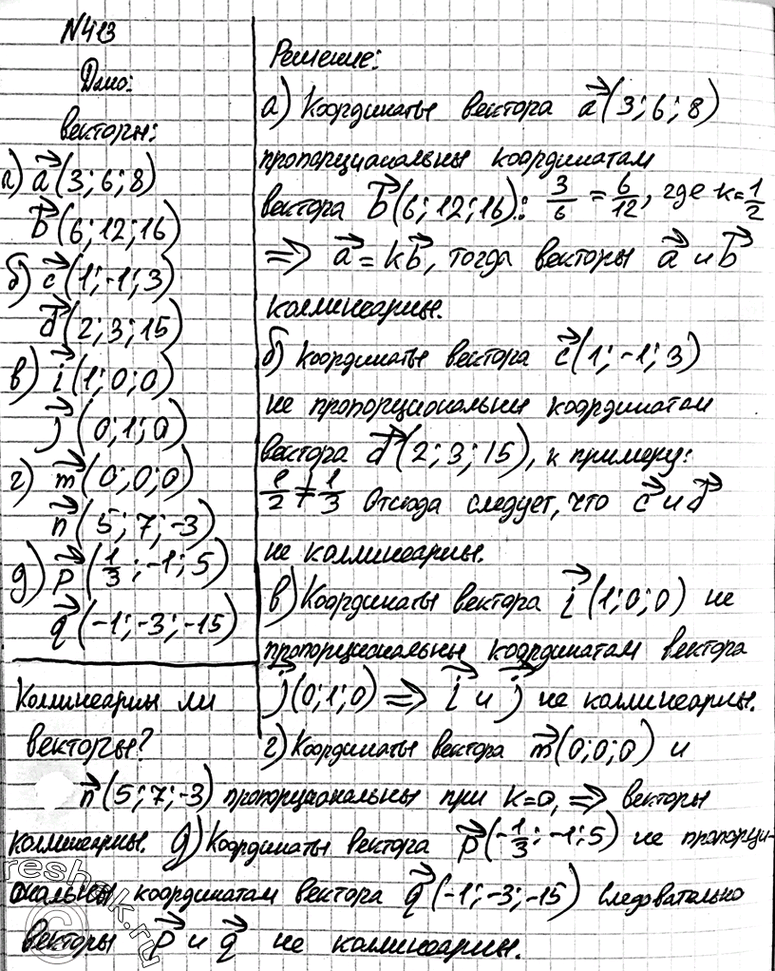 N413
Дано:
векторы:
а) a⃗(3; 6; 8)
b⃗(6; 12; 16)
б) c⃗(1; -1; 3)
d⃗(2; 3; 15)
в) i⃗(1; 0; 0)
j⃗(0; 1; 0)
г) m⃗(0; 0; 0)
n⃗(5; 7; -3)
д) p⃗(1/3; -1; 5)
q⃗(-1; -3; -15)
Коллинеарны ли
векторы?
Решение:
а) Координаты вектора a⃗(3; 6; 8)
пропорциональны координатам
вектора b⃗(6; 12; 16): 3/6 = 6/12, где k=1/2
⇒ a⃗ = kb⃗, тогда векторы a⃗ и b⃗
коллинеарны.
б) Координаты вектора c⃗(1; -1; 3)
не пропорциональны координатам
вектора d⃗(2; 3; 15), к примеру:
1/2 ≠ 1/3 Отсюда следует, что c⃗ и d⃗
не коллинеарны.
в) Координаты вектора i⃗(1; 0; 0) не
пропорциональны координатам вектора
j⃗(0; 1; 0) ⇒ i⃗ и j⃗ не коллинеарны.
г) Координаты вектора m⃗(0; 0; 0) и
n⃗(5; 7; -3) пропорциональны при k=0, ⇒ векторы
коллинеарны. д) Координаты вектора p⃗(-1/3; -1; 5) не пропорци-
ональны координатам вектора q⃗(-1; -3; -15) следовательно
векторы p⃗ и q⃗ не коллинеарны.
reshak.ru